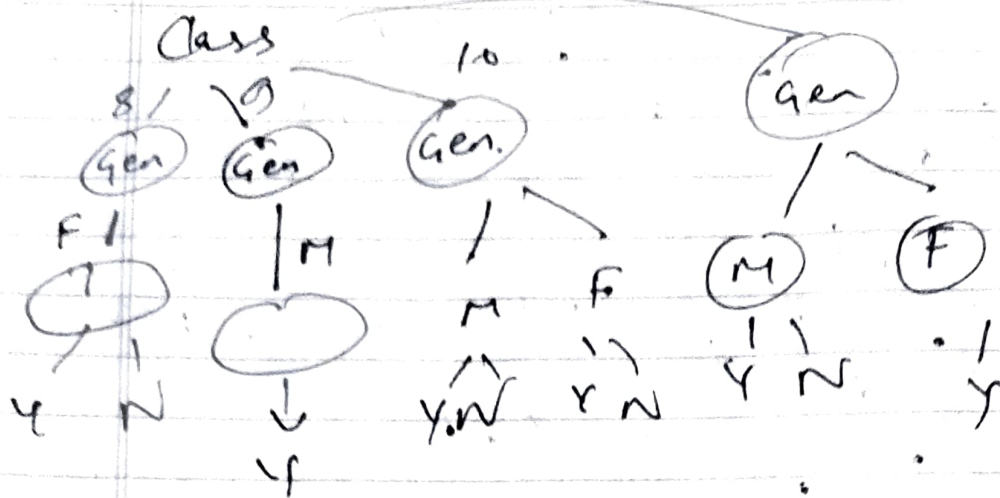 Class
10
8 9
Gen Gen Gen. Gen
F M
M F M F
Y N Y N Y N Y
Y N
Y